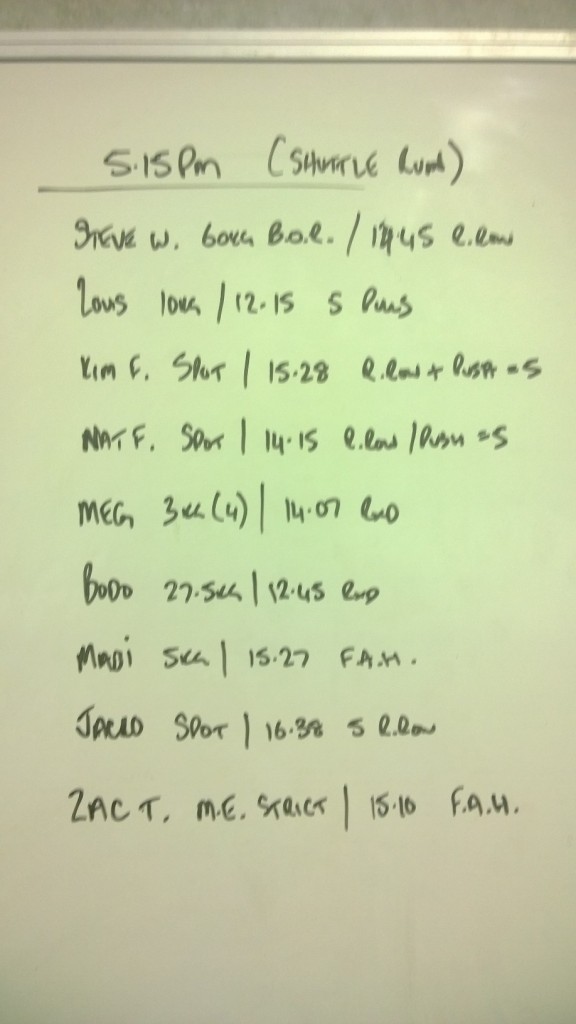 5.15Pm (SHUTTLE RUNS)
STEVE W. 60KG B.O.R. / 45 R.ROW
LOUIS 10KG / 12.15 5
KIM F. SPOT | 15.28 R.ROW + PUSH = 5
NAT F. SPOT | 14.15 R.ROW / PUSH = 5
MEG 3KG (4) | 14.07
BODO 27.5KG | 12.45
MADI 5KG | 15.27 F.A.H.
SPOT | 16.38 5 R.ROW
ZAC T. M.E. STRICT | 15.10 F.A.H.